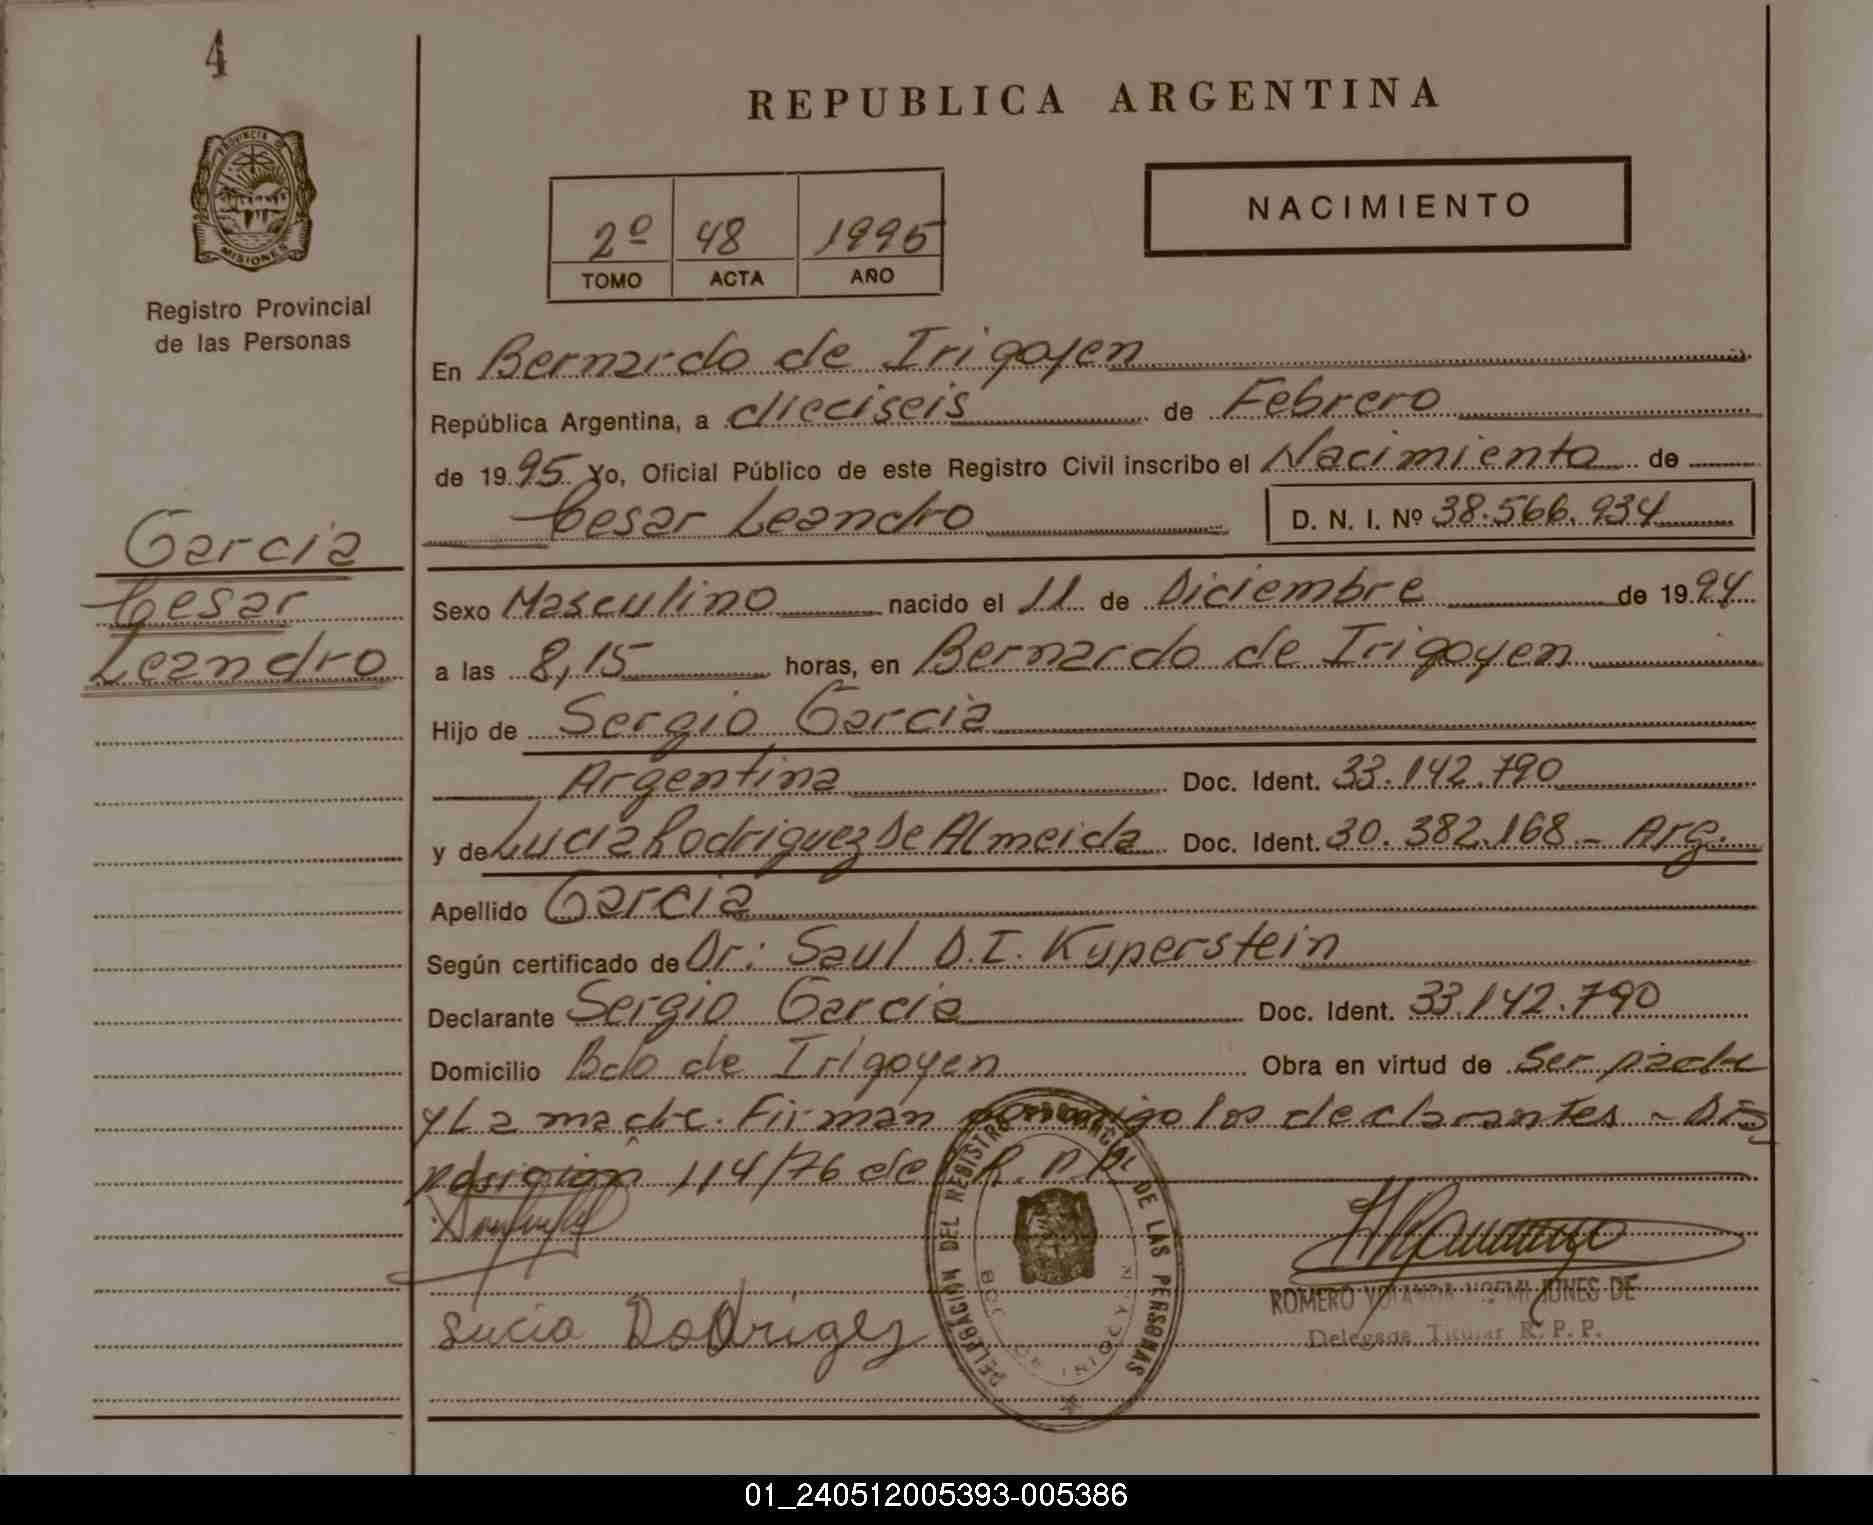 4
PROVINCIA DE
MISIONES
Registro Provincial
de las Personas
Garcia
Cesar
Leandro
REPUBLICA ARGENTINA
2º 48 1995
TOMO ACTA AÑO
NACIMIENTO
En Bernardo de Irigoyen
República Argentina, a dieciseis de Febrero
de 1995 Yo, Oficial Público de este Registro Civil inscribo el Nacimiento de
Cesar Leandro D. N. I. Nº 38.566.934
Sexo Masculino nacido el 11 de Diciembre de 1994
a las 8,15 horas, en Bernardo de Irigoyen
Hijo de Sergio Garcia
Argentina Doc. Ident. 33.142.790
y de Lucia Rodriguez De Almeida Doc. Ident. 30.382.168 - Arg.
Apellido Garcia
Según certificado de Dr: Saul D.I. Kuperstein
Declarante Sergio Garcia Doc. Ident. 33.142.790
Domicilio Bdo de Irigoyen Obra en virtud de Ser padre
y La madre. Firman conmigo los declarantes - Dis
posición 114/76 del R.P.P.
DELEGACIÓN DEL REGISTRO PROVINCIAL DE LAS PERSONAS
BDO. DE IRIGOYEN
Lucia Rodrigez
ROMERO YOLANDA NOEMI JONES DE
Delegada Titular R. P. P.
01_240512005393-005386